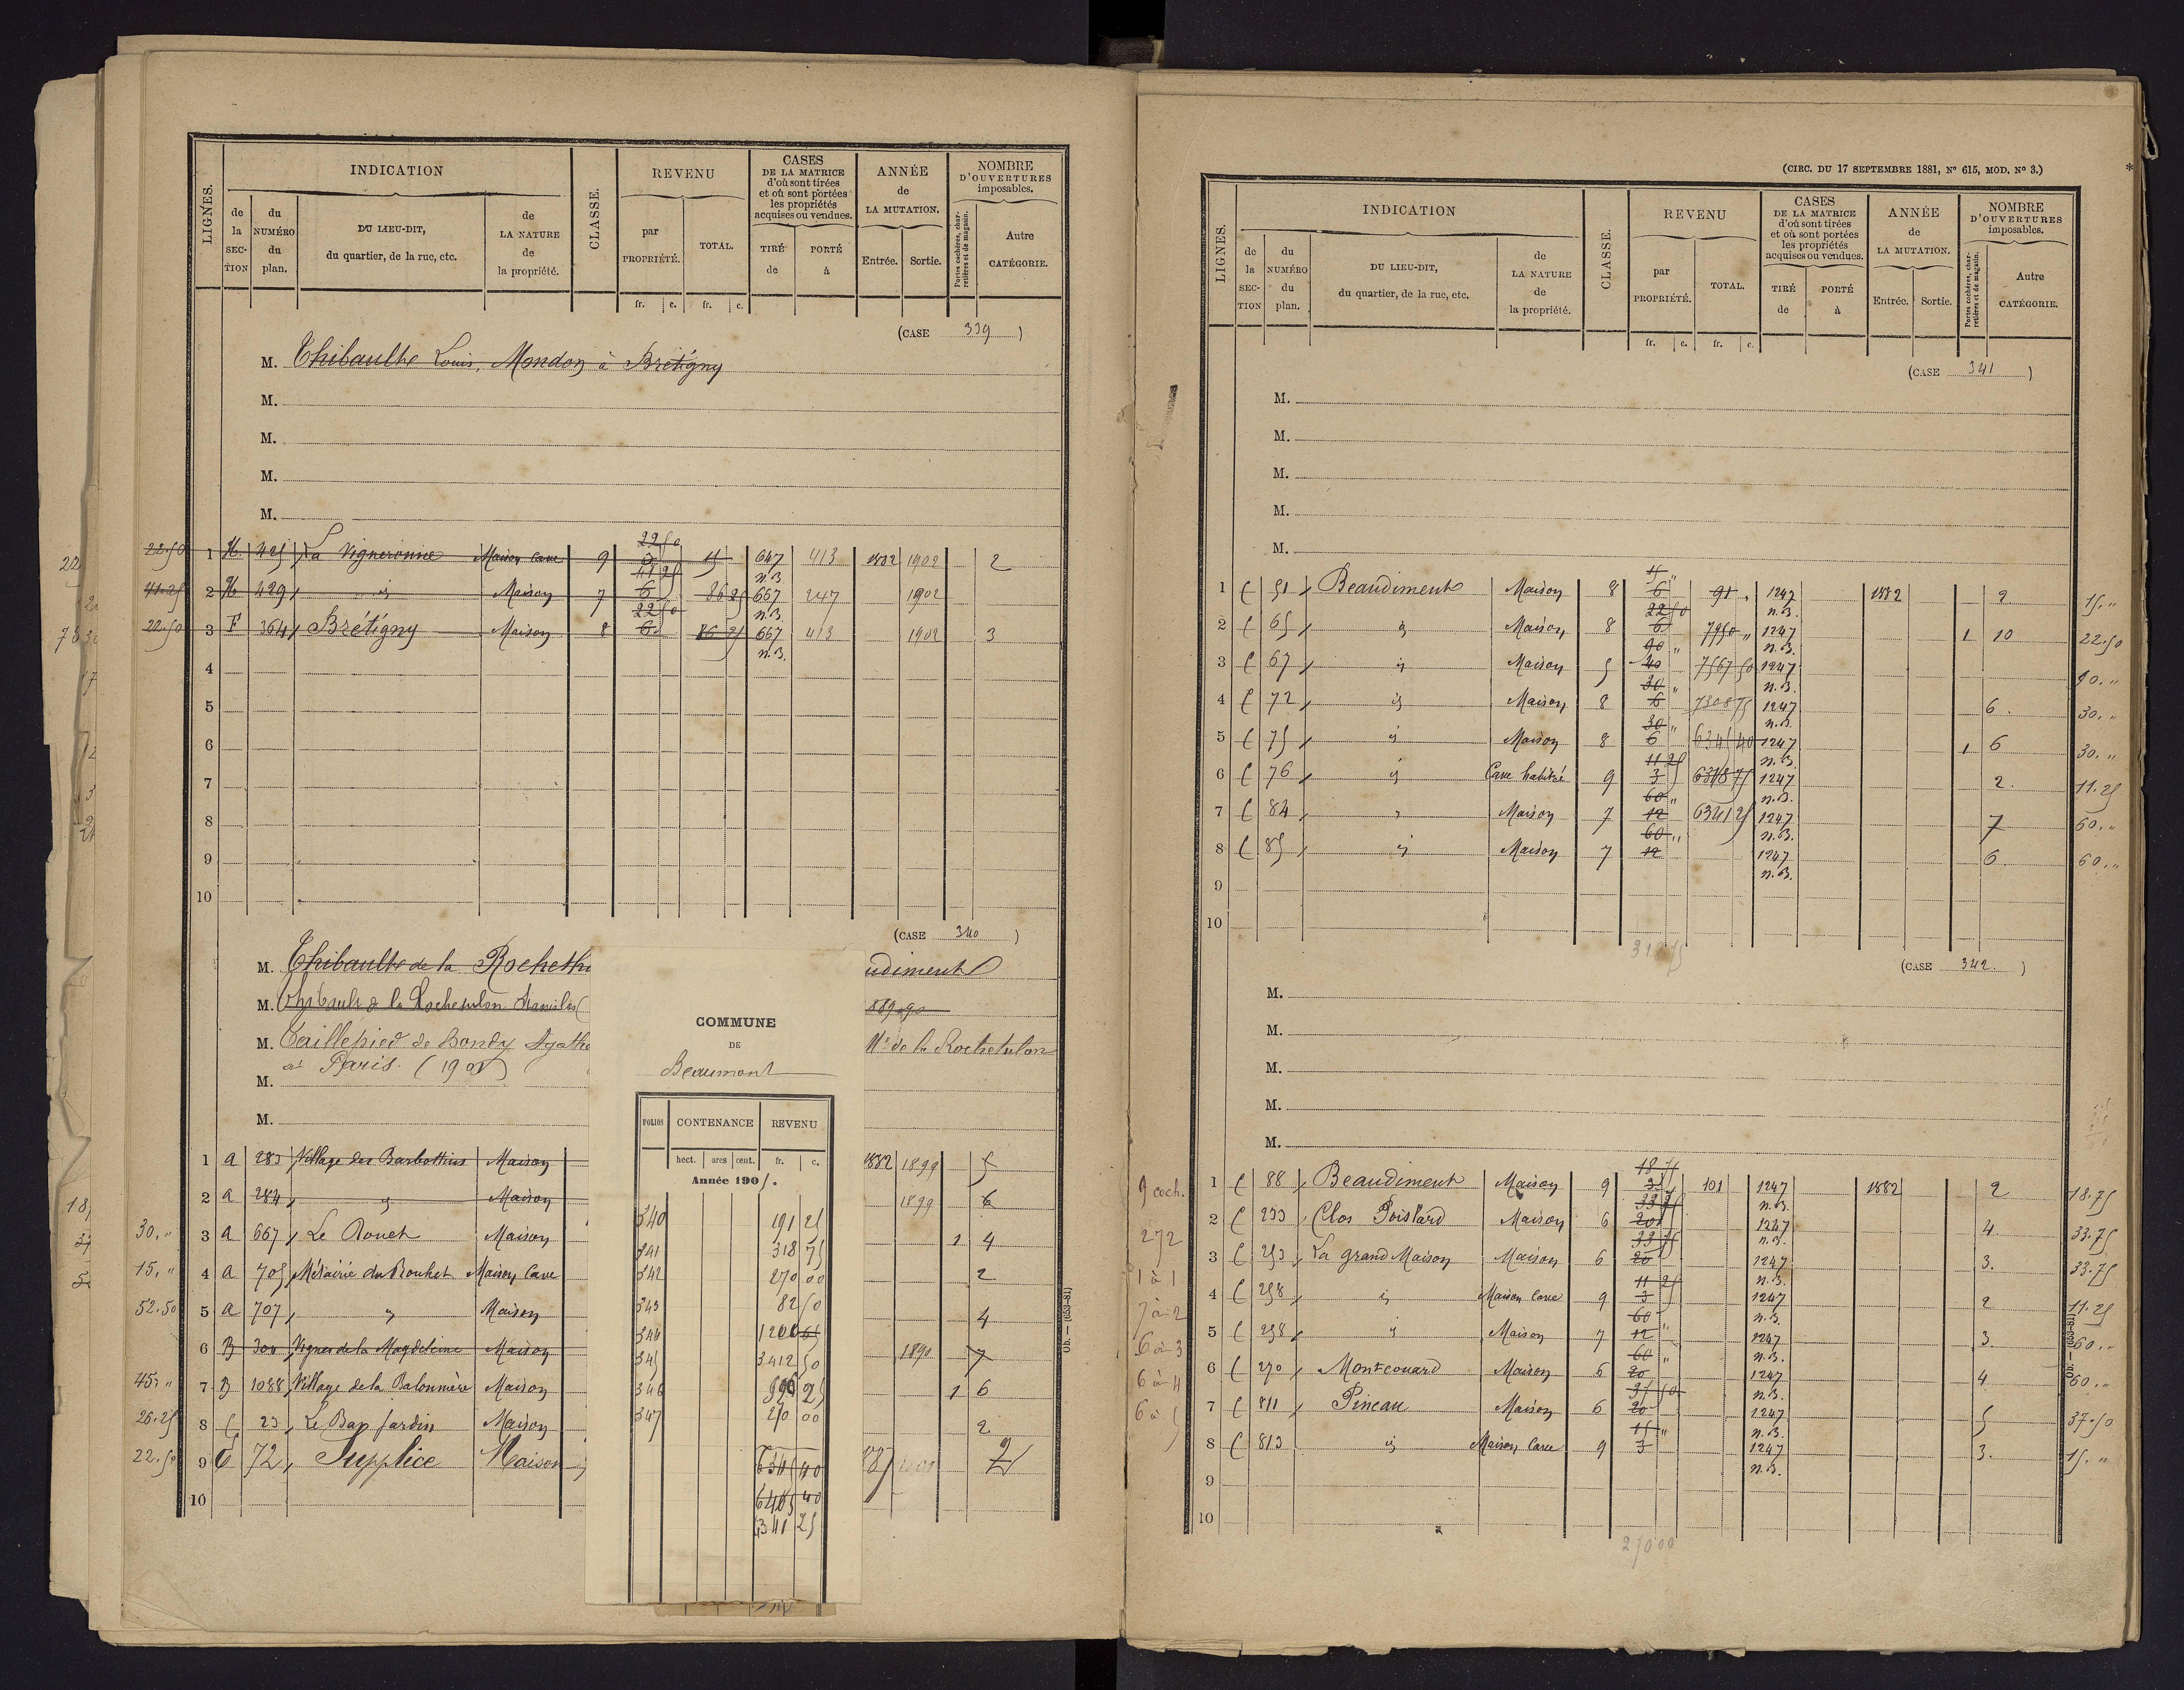 LIGNES.
INDICATION
de la SECTION
du NUMÉRO du plan.
DU LIEU-DIT, du quartier, de la rue, etc.
de LA NATURE de la propriété.
CLASSE.
REVENU
par PROPRIÉTÉ.
TOTAL.
fr. c. fr. c.
CASES DE LA MATRICE d'où sont tirées et où sont portées les propriétés acquises ou vendues.
TIRÉ de
PORTÉ à
ANNÉE de LA MUTATION.
Entrée. Sortie.
NOMBRE D'OUVERTURES imposables.
Portes cochères, charretières et de magasin.
Autre CATÉGORIE.
(CASE 339)
M. Thibault Louis, Mondon à Bretigny
M.
M.
M.
M.
22.50 1 H 425 La Vigneronne Maison Cave 9 22 50 647 n.B. 413 1882 1902 2
41.25 2 H 429 id Maison 7 41 25 6 86 25 667 n.B. 247 1902
22.50 3 F 364 Brétigny Maison 8 22 50 6 667 n.B. 413 1902 3
4
5
6
7
8
9
10
(CASE 340)
M. Thibault de la Rocheth
udiment
M. Thibault de la Rochetulon Stanislas
M. Taillepied de Bondy Agathe
Mis de la Rochetulon
à Paris (1901)
M.
M.
1 A 283 Village des Barbottins Maison 1882 1899 5
2 A 284 id Maison 1899 6
30. " 3 A 667 Le Rouet Maison 1 4
15. " 4 A 705 Métairie du Rouhet Maison Cave 2
52.50 5 A 707 " Maison 4
6 B 300 Vignes de la Magdeleine Maison 1890 7
45. " 7 B 1088 Village de la Balonnière Maison 1 6
26.25 8 C 23 Le Bas Jardin Maison 2
22.50 9 C 72 Supplice Maison 2
10
COMMUNE
DE
Beaumont
FOLIOS CONTENANCE REVENU
hect. ares cent. fr. c.
Année 1905.
340 191 25
341 318 75
342 270 00
343 82 50
344 1200
345 3412 50
346 596 25
347 270 00
6345 40
6405 40
6341 25
Ob. — (653-81)
(CIRC. DU 17 SEPTEMBRE 1881, N° 615, MOD. N° 3.)
LIGNES.
INDICATION
de la SECTION
du NUMÉRO du plan.
DU LIEU-DIT, du quartier, de la rue, etc.
de LA NATURE de la propriété.
CLASSE.
REVENU
par PROPRIÉTÉ.
TOTAL.
fr. c. fr. c.
CASES DE LA MATRICE d'où sont tirées et où sont portées les propriétés acquises ou vendues.
TIRÉ de
PORTÉ à
ANNÉE de LA MUTATION.
Entrée. Sortie.
NOMBRE D'OUVERTURES imposables.
Portes cochères, charretières et de magasin.
Autre CATÉGORIE.
(CASE 341)
M.
M.
M.
M.
M.
1 C 51 Beaudiment Maison 8 15 " 6 91 " 1247 n.B. 1882 2 15. "
2 C 65 id Maison 8 22 50 6 7950 " 1247 n.B. 1 10 22.50
3 C 67 id Maison 5 90 " 40 7567 50 1247 n.B. 90. "
4 C 72 id Maison 8 30 " 6 7308 75 1247 n.B. 6. 30. "
5 C 75 id Maison 8 30 " 6 6345 40 1247 n.B. 1 6 30. "
6 C 76 id Cave habitée 9 11 25 3 6318 75 1247 n.B. 2. 11.25
7 C 84 " Maison 7 60 " 12 6341 25 1247 n.B. 7 60. "
8 C 85 id Maison 7 60 " 12 1247 n.B. 6. 60. "
9
10
318 75
(CASE 342.)
M.
M.
M.
M.
M.
9 coch.
272
1 à 1
7 à 2
6 à 3
6 à 4
6 à 5
1 C 88 Beaudiment Maison 9 18 75 3 101 1247 n.B. 1882 2 18.75
2 C 233 Clos Poistard Maison 6 33 75 20 1247 n.B. 4 33.75
3 C 253 La grand Maison Maison 6 33 75 20 1247 n.B. 3. 33.75
4 C 258 id Maison Cave 9 11 25 3 1247 n.B. 2 11.25
5 C 258 id Maison 7 60 " 12 1247 n.B. 3. 60. "
6 C 270 Montcouard Maison 6 60 " 20 1247 n.B. 4 60. "
7 C 811 Pineau Maison 6 37 50 20 1247 n.B. 5 37.50
8 C 813 id Maison Cave 9 15 " 3 1247 n.B. 3. 15. "
9
10
270 00
Ob. — (653-81)